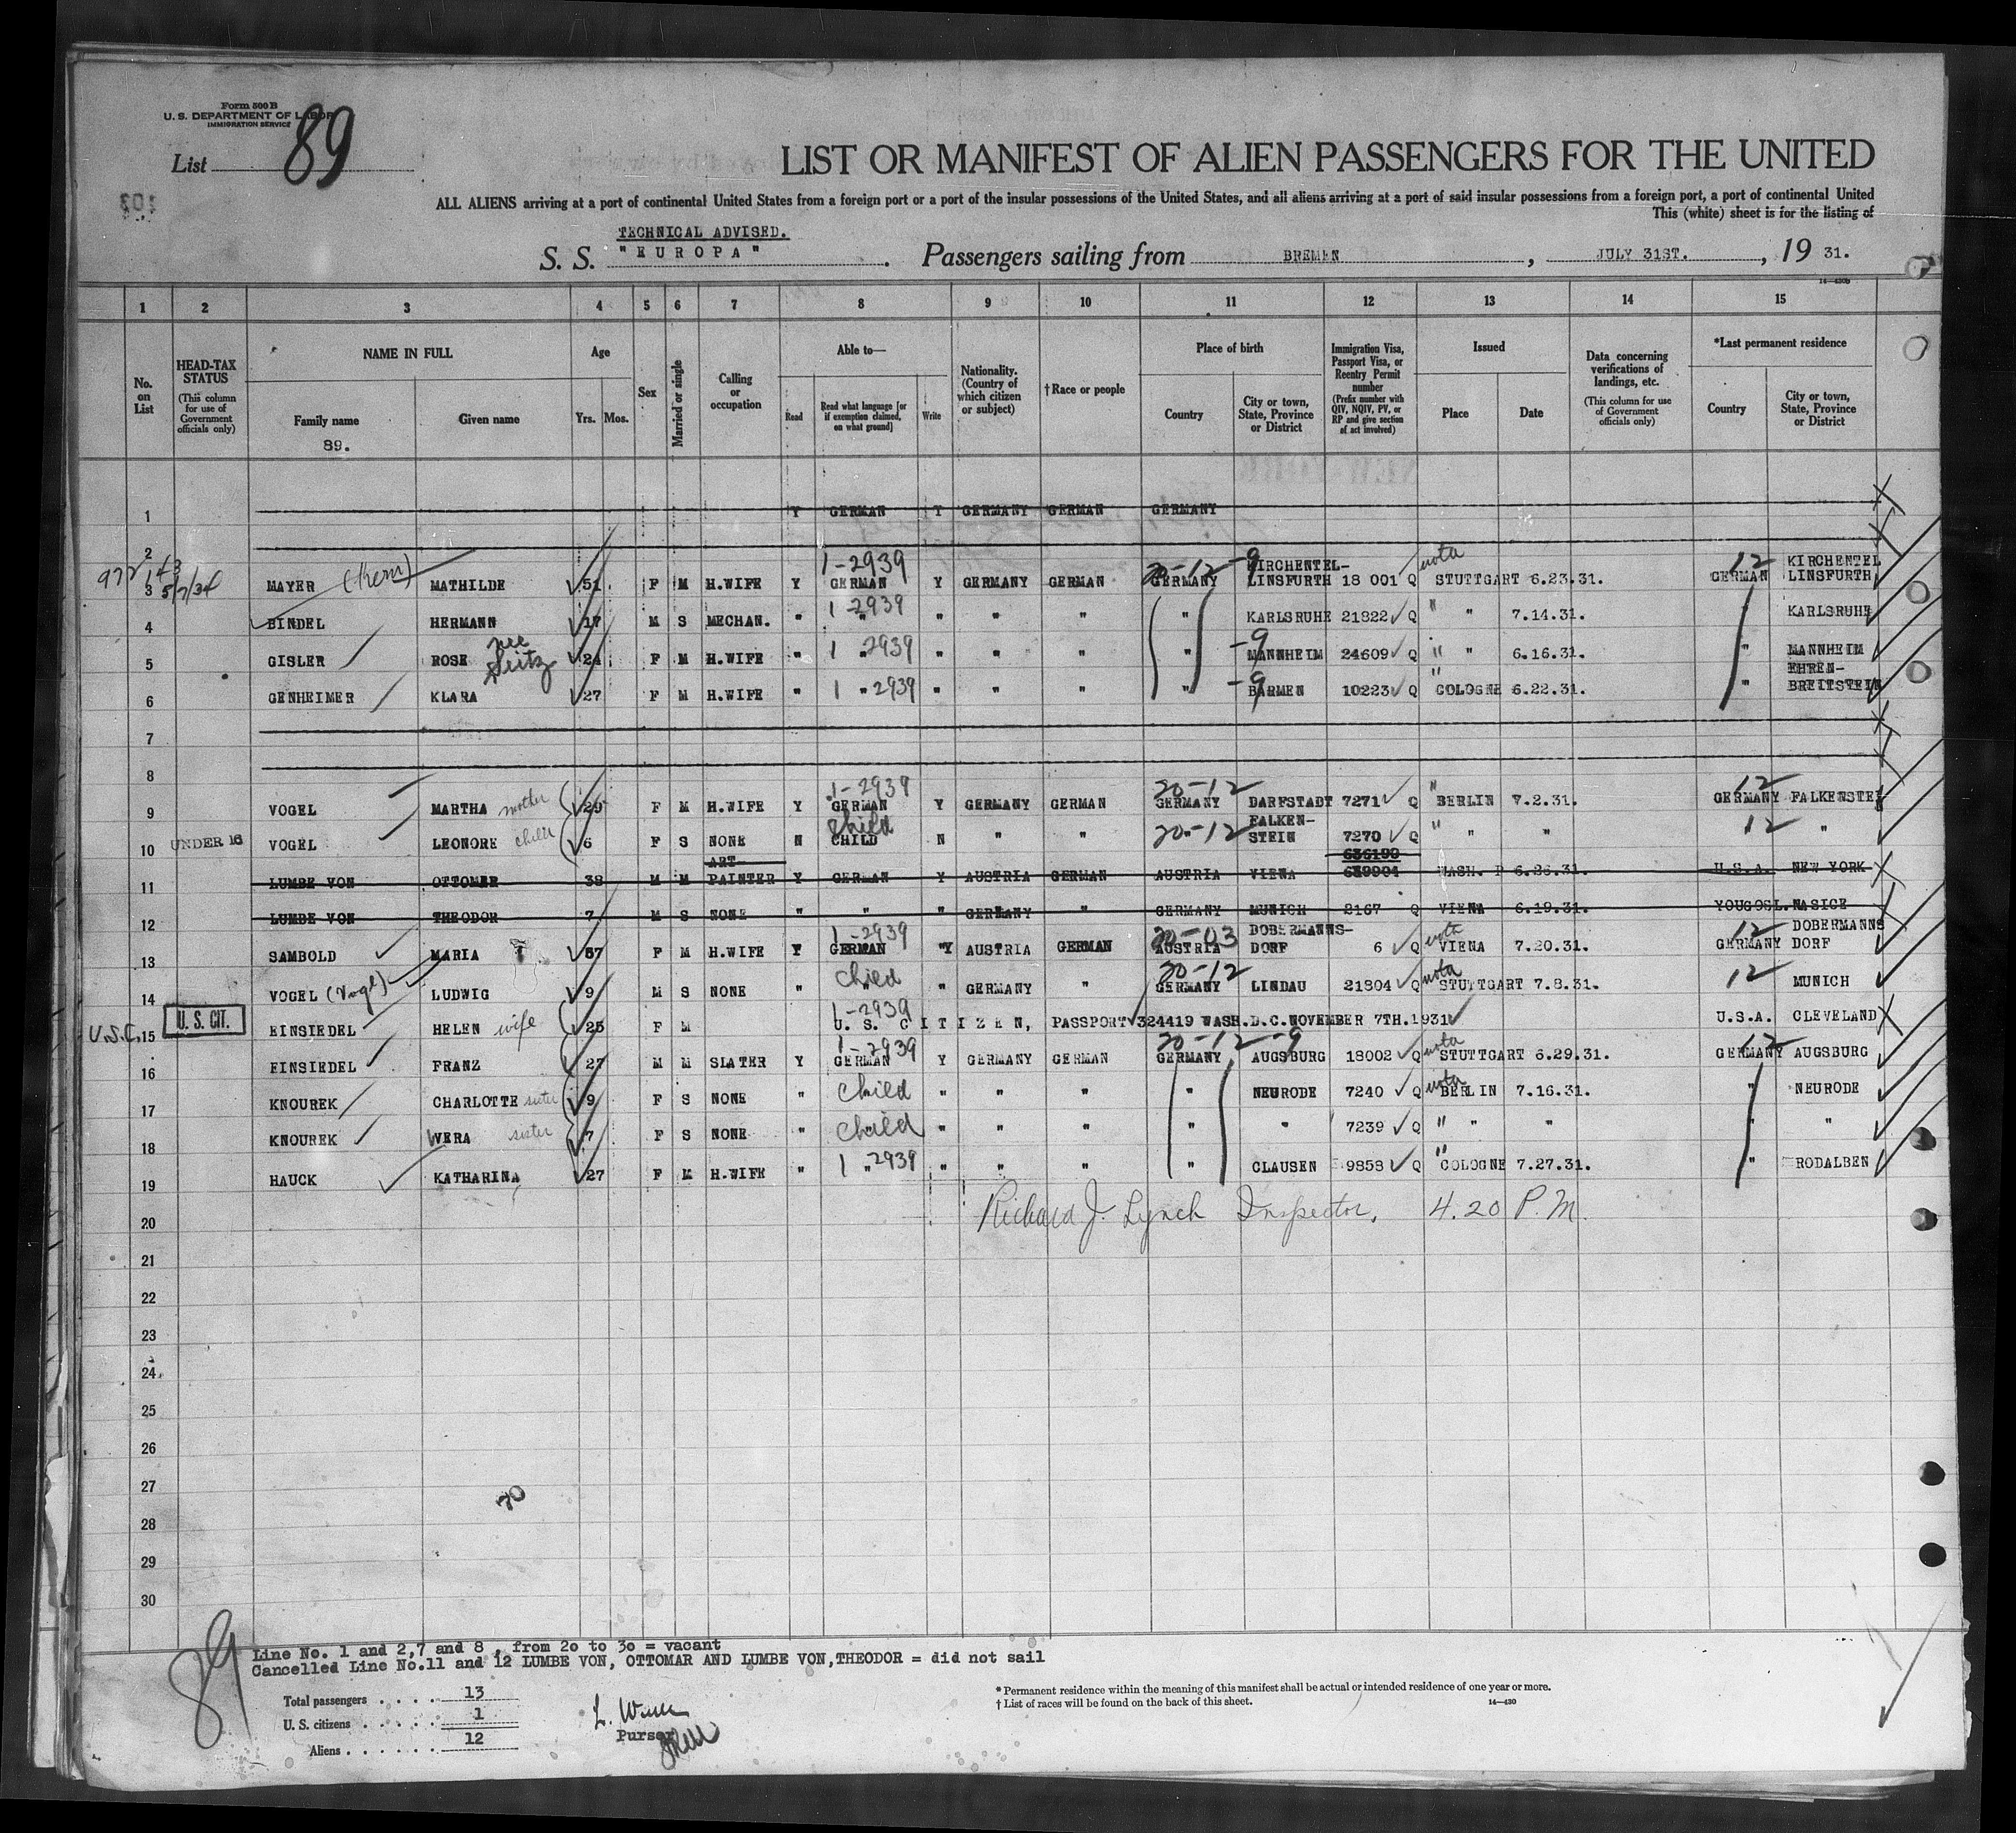 Form 500 B
U. S. DEPARTMENT OF LABOR
IMMIGRATION SERVICE
List 89
LIST OR MANIFEST OF ALIEN PASSENGERS FOR THE UNITED
ALL ALIENS arriving at a port of continental United States from a foreign port or a port of the insular possessions of the United States, and all aliens arriving at a port of said insular possessions from a foreign port, a port of continental United
This (white) sheet is for the listing of
TECHNICAL ADVISED.
S. S. "EUROPA". Passengers sailing from BREMEN, JULY 31ST., 19 31.
14—430B
1 2 3 4 5 6 7 8 9 10 11 12 13 14 15
No. on List
HEAD-TAX STATUS (This column for use of Government officials only)
NAME IN FULL
Family name
89.
Given name
Age
Yrs. Mos.
Sex
Married or single
Calling or occupation
Able to—
Read
Read what language [or if exemption claimed, on what ground]
Write
Nationality. (Country of which citizen or subject)
† Race or people
Place of birth
Country
City or town, State, Province or District
Immigration Visa, Passport Visa, or Reentry Permit number (Prefix number with QIV, NQIV, PV, or RP and give section of act involved)
Issued
Place
Date
Data concerning verifications of landings, etc. (This column for use of Government officials only)
*Last permanent residence
Country
City or town, State, Province or District
1 Y GERMAN Y GERMANY GERMAN GERMANY
2
3 MAYER (Kern) MATHILDE 51 F M H.WIFE Y 1-2939 GERMAN Y GERMANY GERMAN 20-12-9 GERMANY KIRCHENTEL-LINSFURTH 18 001 Q STUTTGART 6.23.31. 12 GERMAN KIRCHENTEL LINSFURTH
4 BINDEL HERMANN 17 M S MECHAN. " 1 2939 " " " " " KARLSRUHE 21822 Q " " 7.14.31. KARLSRUHE
5 GISLER ROSE nee Seitz 24 F M H.WIFE " 1 " 2939 " " " " -9 MANNHEIM 24609 Q " " 6.16.31. " MANNHEIM
6 GENHEIMER KLARA 27 F M H.WIFE " 1 " 2939 " " " " -9 BARMEN 10223 Q COLOGNE 6.22.31. " EHREN-BREITSTEIN
7
8
9 VOGEL MARTHA mother 29 F M H.WIFE Y 1-2939 GERMAN Y GERMANY GERMAN 20-12 GERMANY DARFSTADT 7271 Q " BERLIN 7.2.31. 12 GERMANY FALKENSTEI
10 UNDER 16 VOGEL LEONORE child 6 F S NONE N Child CHILD N " " 20-12 " FALKEN-STEIN 7270 Q " " " 12 "
11 LUMBE VON OTTOMAR 38 M M ART-PAINTER Y GERMAN Y AUSTRIA GERMAN AUSTRIA VIENA 636190 639904 WASH. P 6.26.31. U.S.A. NEW YORK
12 LUMBE VON THEODOR 7 M S NONE " " " GERMANY " GERMANY MUNICH 2167 Q VIENA 6.19.31. YOUGOSL. NASICE
13 SAMBOLD MARIA 57 F M H.WIFE Y 1-2939 GERMAN "Y AUSTRIA GERMAN 20-03 AUSTRIA DOBERMANNS-DORF 6 Q VIENA 7.20.31. 12 GERMANY DOBERMANNS DORF
14 VOGEL (Vogl) LUDWIG 9 M S NONE " Child " GERMANY " 20-12 GERMANY LINDAU 21804 Q STUTTGART 7.8.31. 12 MUNICH
U.S.C. 15 U. S. CIT. EINSIEDEL HELEN wife 25 F M 1-2939 U. S. CITIZEN, PASSPORT 324419 WASH.D.C.NOVEMBER 7TH.1931 U.S.A. CLEVELAND
16 EINSIEDEL FRANZ 27 M M SLATER Y 1-2939 GERMAN Y GERMANY GERMAN 20-12-9 GERMANY AUGSBURG 18002 Q STUTTGART 6.29.31. 12 GERMANY AUGSBURG
17 KNOUREK CHARLOTTE sister 9 F S NONE " Child " " " " NEURODE 7240 Q BERLIN 7.16.31. " NEURODE
18 KNOUREK WERA sister 7 F S NONE " Child " " " " " 7239 Q " " " " "
19 HAUCK KATHARINA 27 F M H.WIFE " 1 " 2939 " " " " CLAUSEN 9858 Q "COLOGNE 7.27.31. " RODALBEN
20 Richard J. Lynch Inspector, 4.20 P.M.
21
22
23
24
25
26
27
28
29
30
89
Line No. 1 and 2,7 and 8 , from 2o to 3o = vacant
Cancelled Line No.11 and 12 LUMBE VON, OTTOMAR AND LUMBE VON,THEODOR = did not sail
Total passengers . . . . 13
U. S. citizens . . . . . 1
Aliens . . . . . . 12
Purser
* Permanent residence within the meaning of this manifest shall be actual or intended residence of one year or more.
† List of races will be found on the back of this sheet.
14—430